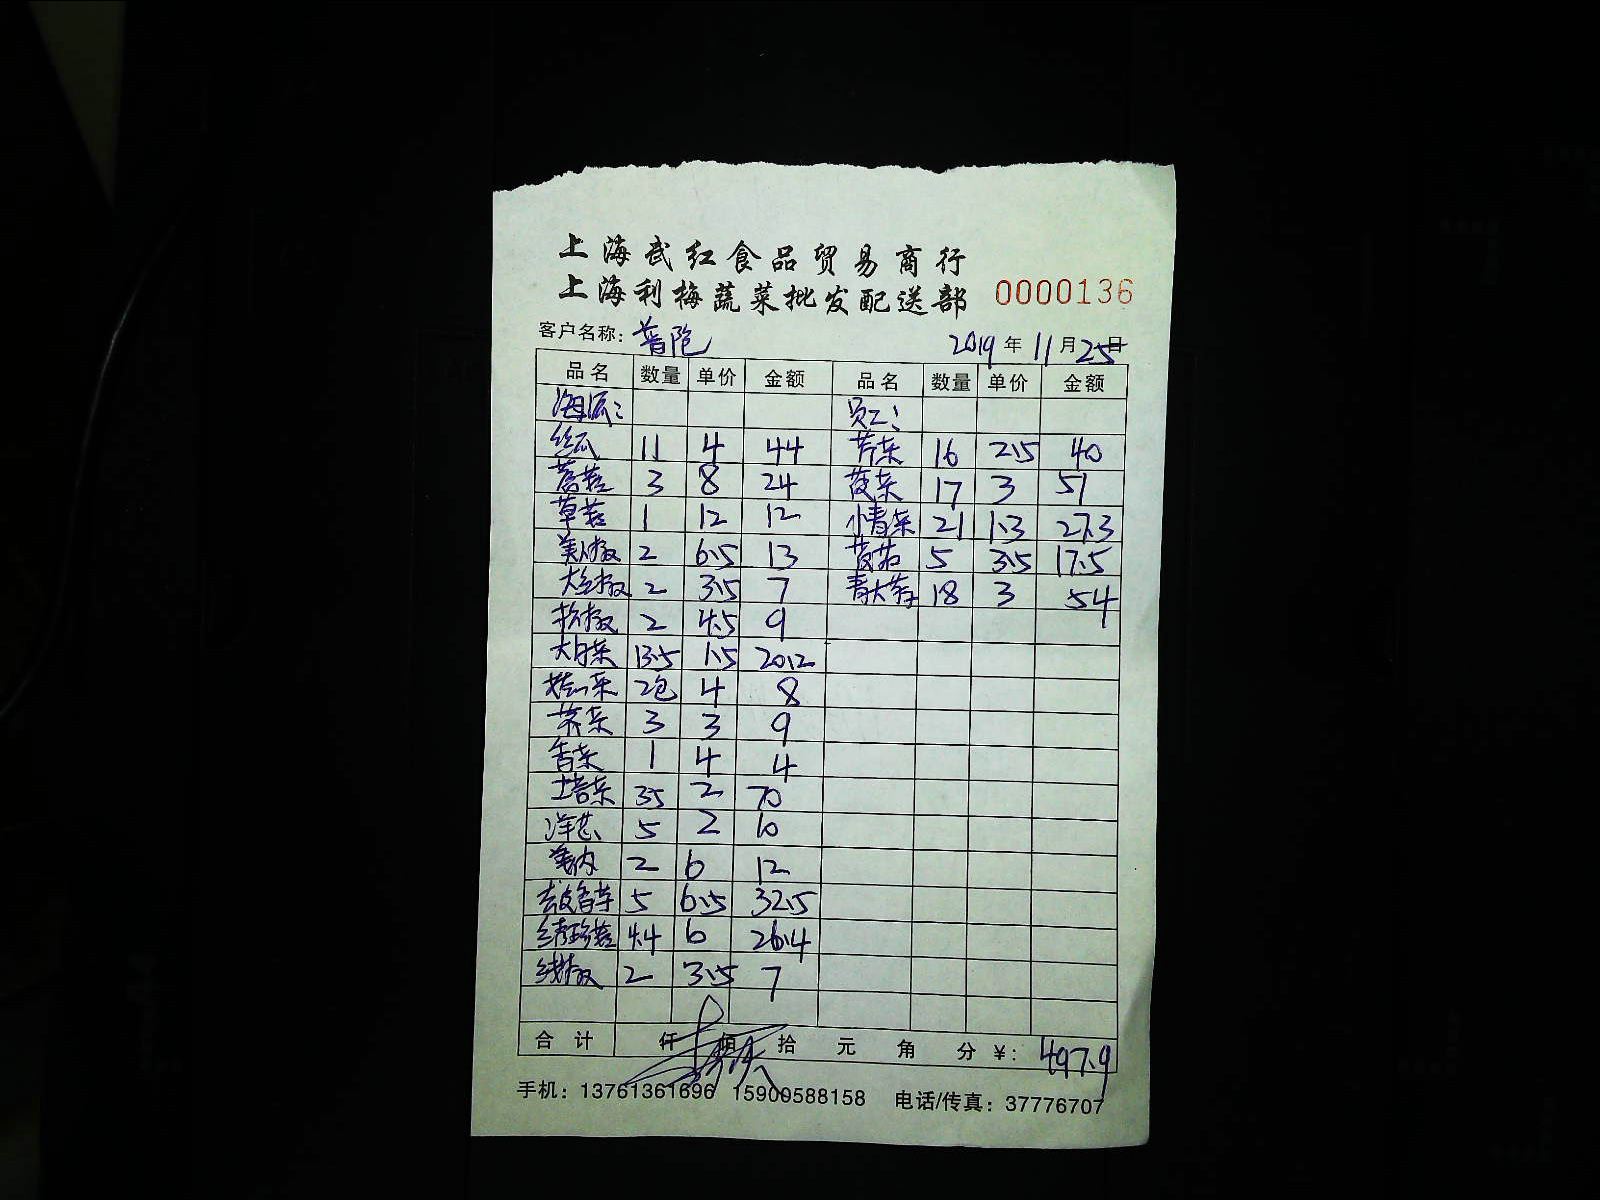 上海武红食品贸易商行
上海利梅蔬菜批发配送部 0000136
客户名称: 普陀 2019年11月25日
品名 数量 单价 金额 品名 数量 单价 金额
海派: 员工:
丝瓜 11 4 44 芹菜 16 2.5 40
3 8 24 菠菜 17 3 51
草菇 1 12 12 小青菜 21 1.3 27.3
美人椒 2 6.5 13 5 3.5 17.5
大红椒 2 3.5 7 青大 18 3 54
2 4.5 9
大白菜 13.5 1.5 20.2
2包 4 8
3 3 9
香菜 1 4 4
35 2 70
洋葱 5 2 10
2 6 12
去皮香芋 5 6.5 32.5
4.4 6 26.4
线椒 2 3.5 7
合计 仟 佰 拾 元 角 分 ¥: 497.9
手机: 13761361696 15900588158 电话/传真: 37776707